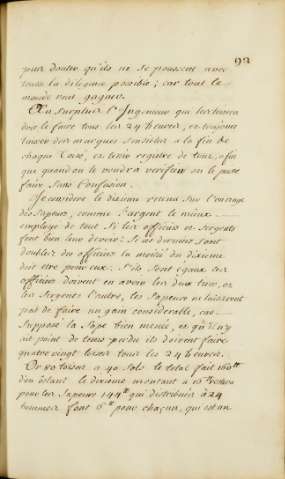 93
pour douter qu'ils ne se poussent avec
toute la diligence possible; car tout le
monde veut gagner.
Au surplus l'Ingenieur qui les toisera
doit le faire tous les 24 heures, et toujours
laisser des marques sensibles a la fin de
chaque Toisé, et tenir registre de tout, afin
que quand on le voudra verifier on le puisse
faire sans confusion.
Je considere le dixieme retenu sur l'ouvrage
des Sapeurs, comme l'argent le mieux
employé de tout si les officiers et Sergents
font bien leur devoir: Si ces derniers sont
doublez des officiers la moitié du dixieme
doit etre pour eux: s'ils sont egaux les
officiers doivent en avoir les deux tiers, et
les Sergents l'autre, les Sapeurs ne laisseront
pas de faire un gain considerable, car
Supposé la Sape bien menée, et qu'il n'y
ait point de tems perdu ils doivent faire
quatre vingt toises tous les 24 heures.
Or 80 toises a 40 sols le total fait 160ᵗᵗ
d'ou ôtant le dixieme montant a 16ᵗᵗ restera
pour les Sapeurs 144ᵗᵗ qui distribuée à 24
hommes font 6ᵗᵗ pour chacun, qui est un